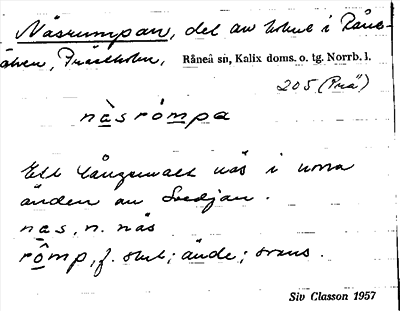 Näsrumpan, del av holme i Råne-
älven, Prästholm, Råneå sn, Kalix doms. o. tg. Norrb. l.
205 (Prä)
nàsròmpa
Ett långsmalt näs i norra
änden av Svedjan.
nas, n. näs
rômp, f. stut; ände; svans.
Siv Classon 1957